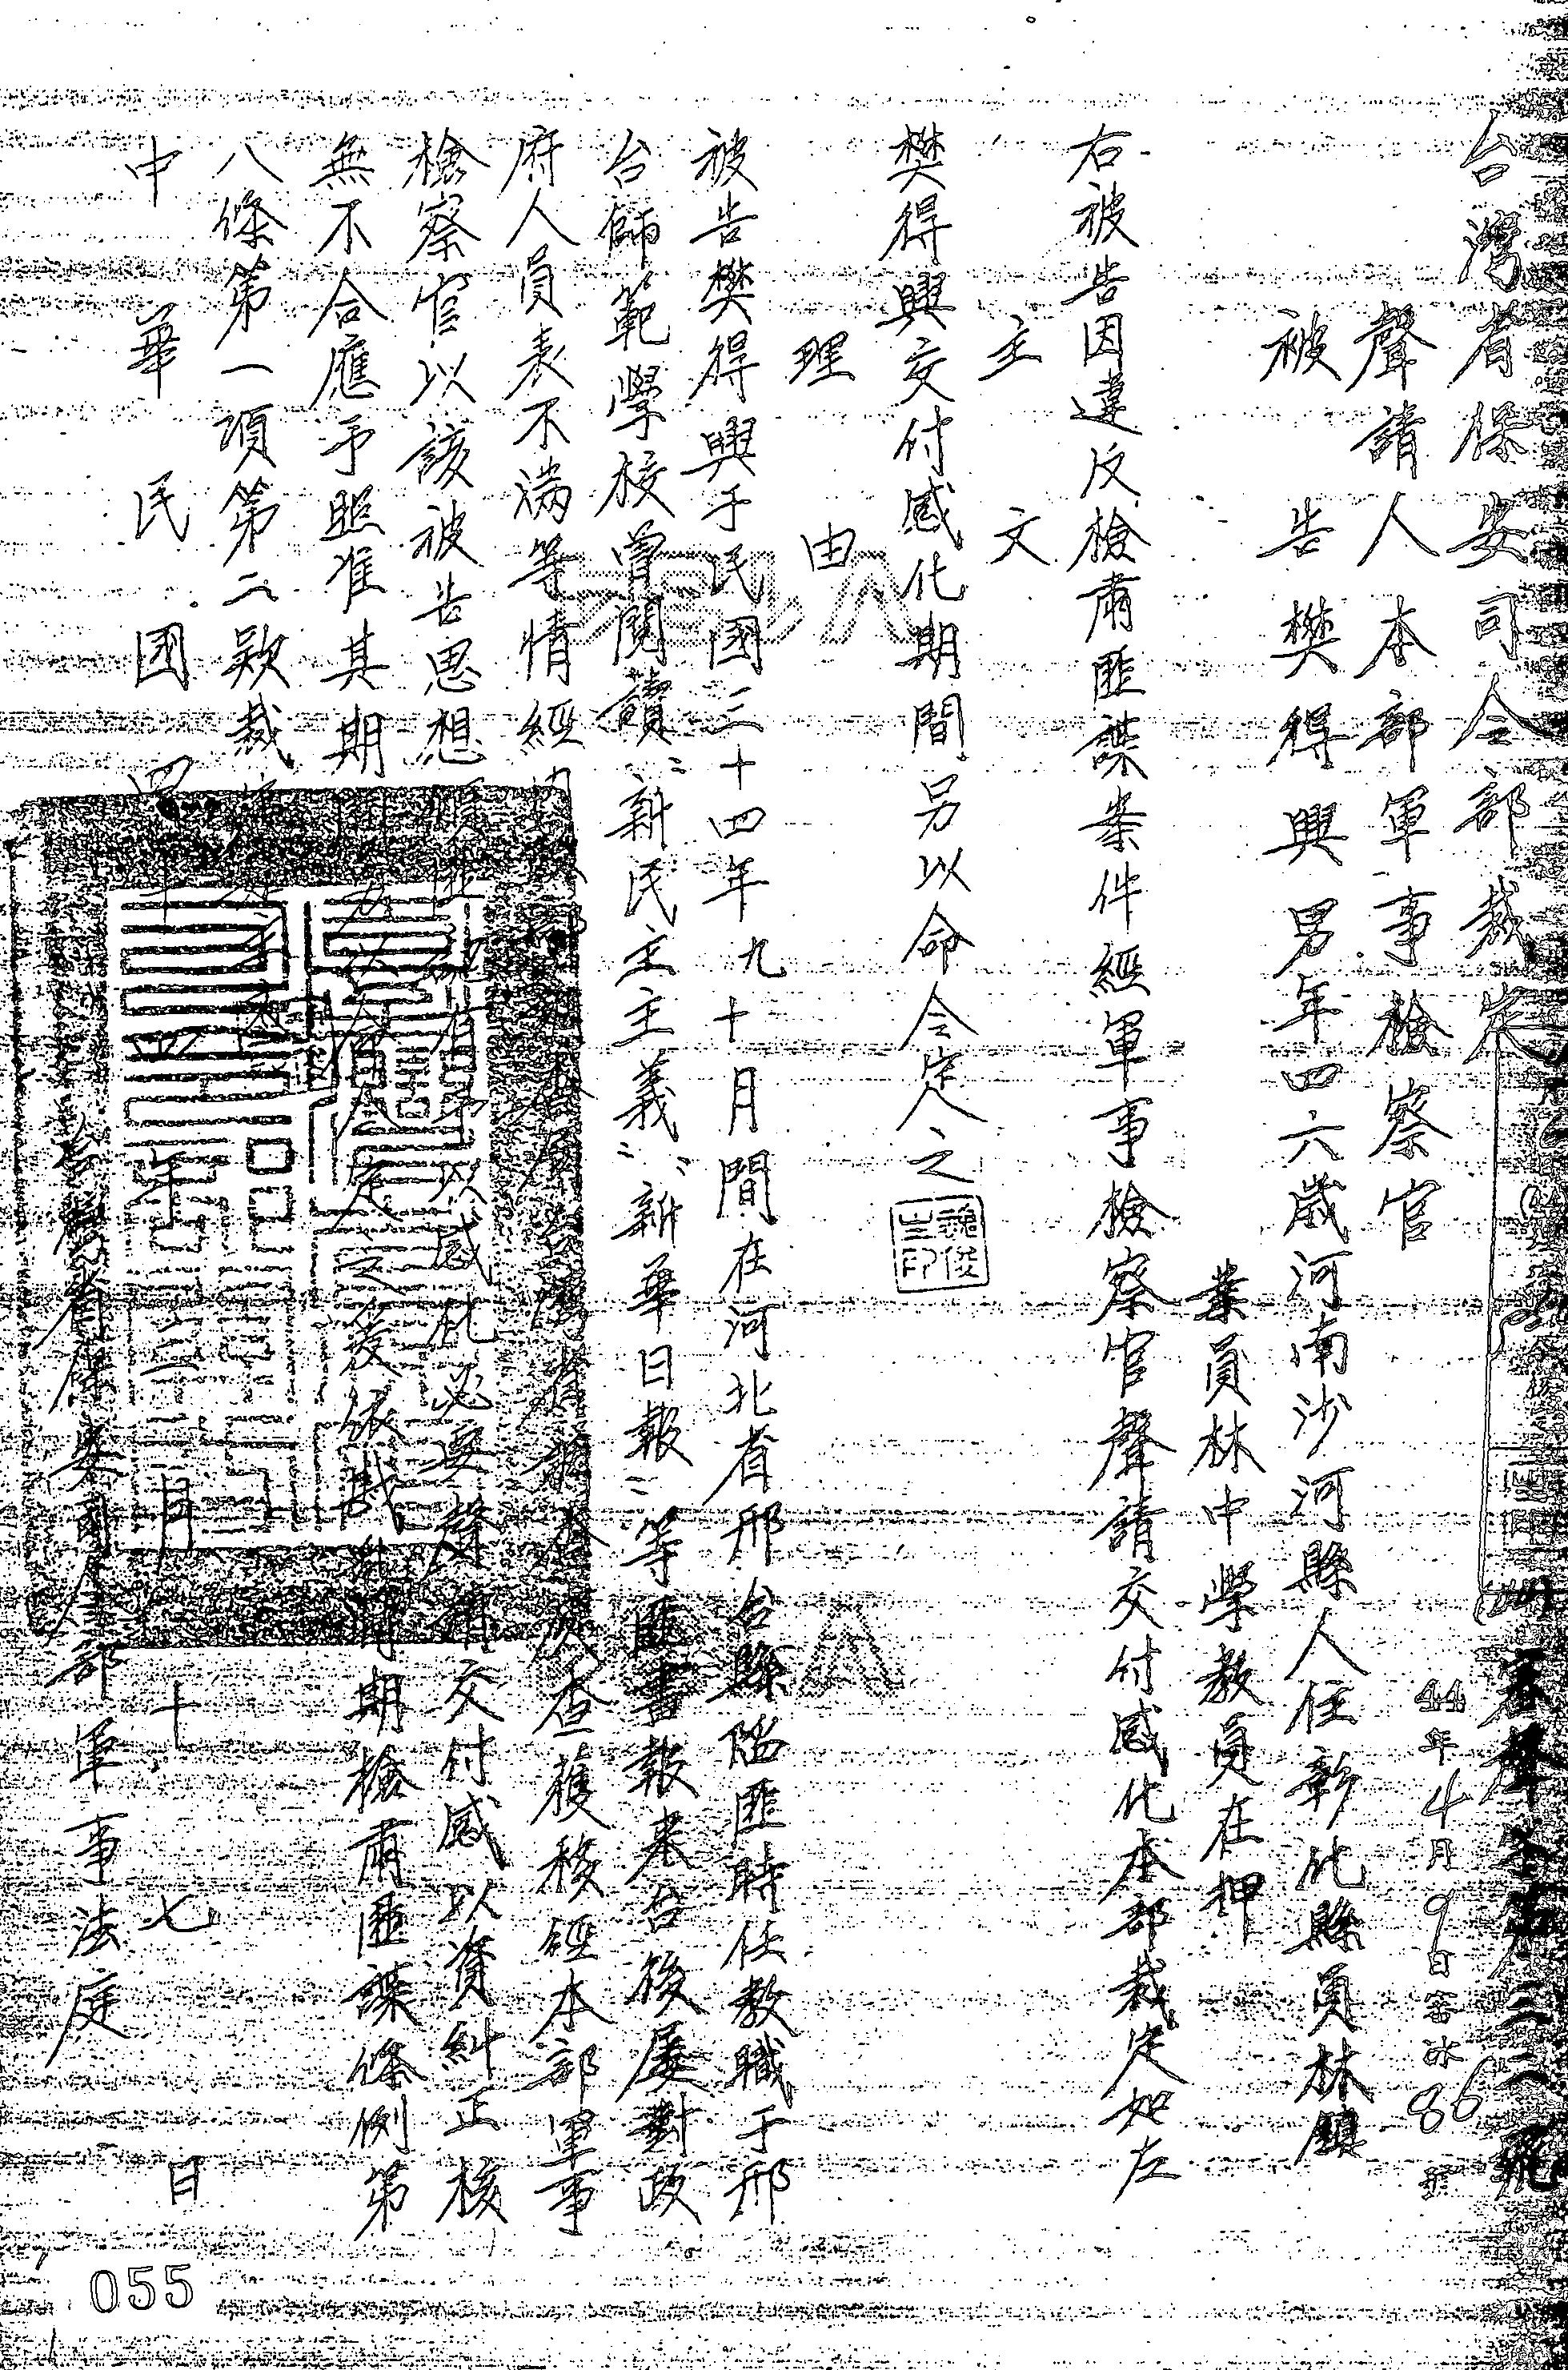 台灣省保安司令部裁定
44年4月9日審字86號
聲請人 本部軍事檢察官
被告 樊得興 男年四六歲河南沙河縣人住彰化縣員林鎮
業員林中學教員在押
右被告因違反檢肅匪諜案件經軍事檢察官聲請交付感化本部裁定如左
主文
樊得興交付感化期間另以命令定之
理由
被告樊得興于民國三十四年九十月間在河北省邢台縣陷匪時任教職于邢
台師範學校曾閱讀"新民主主義""新華日報"等匪書報來台後屢對政
府人員表不滿等情經 查獲移經本部軍事
檢察官以該被告思想 有予以感化必要聲請交付感化以資糾正核
無不合應予照准其期 依戡亂時期檢肅匪諜條例第
八條第一項第二款裁定
中華民國四十四年四月十七日
台灣省保安司令部軍事法庭
055